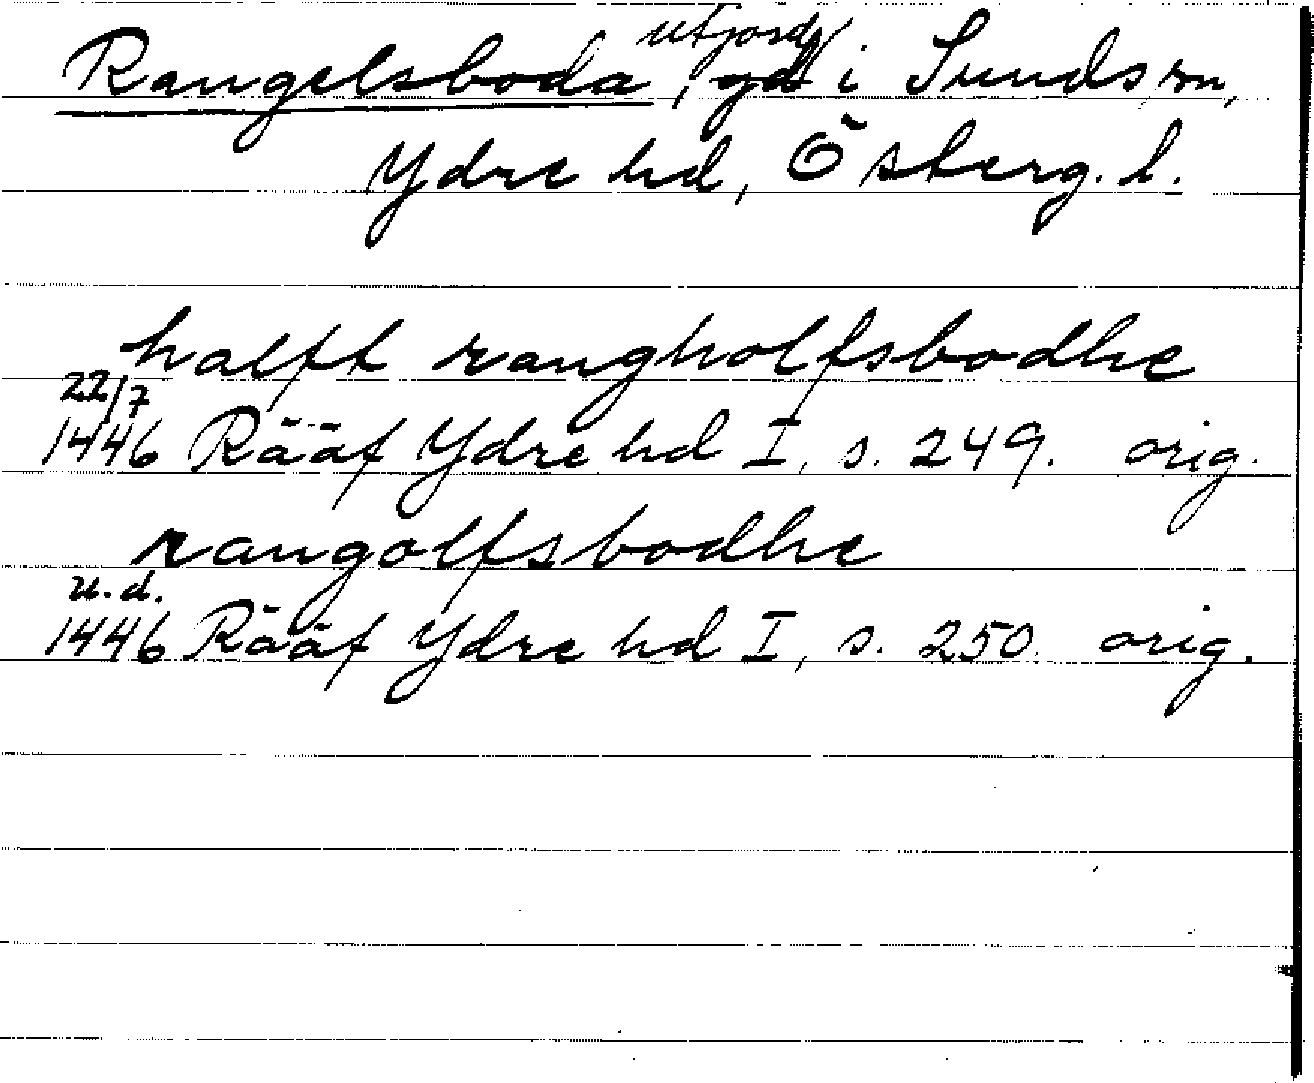 utjord
Rangelsboda, gd i Sunds sn,
Ydre hd, Österg. l.
halfft rangholfsbodhe
22/7
1446 Rääf Ydre hd I, s. 249. orig.
rangolfsbodhe
u.d.
1446 Rääf Ydre hd I, s. 250. orig.